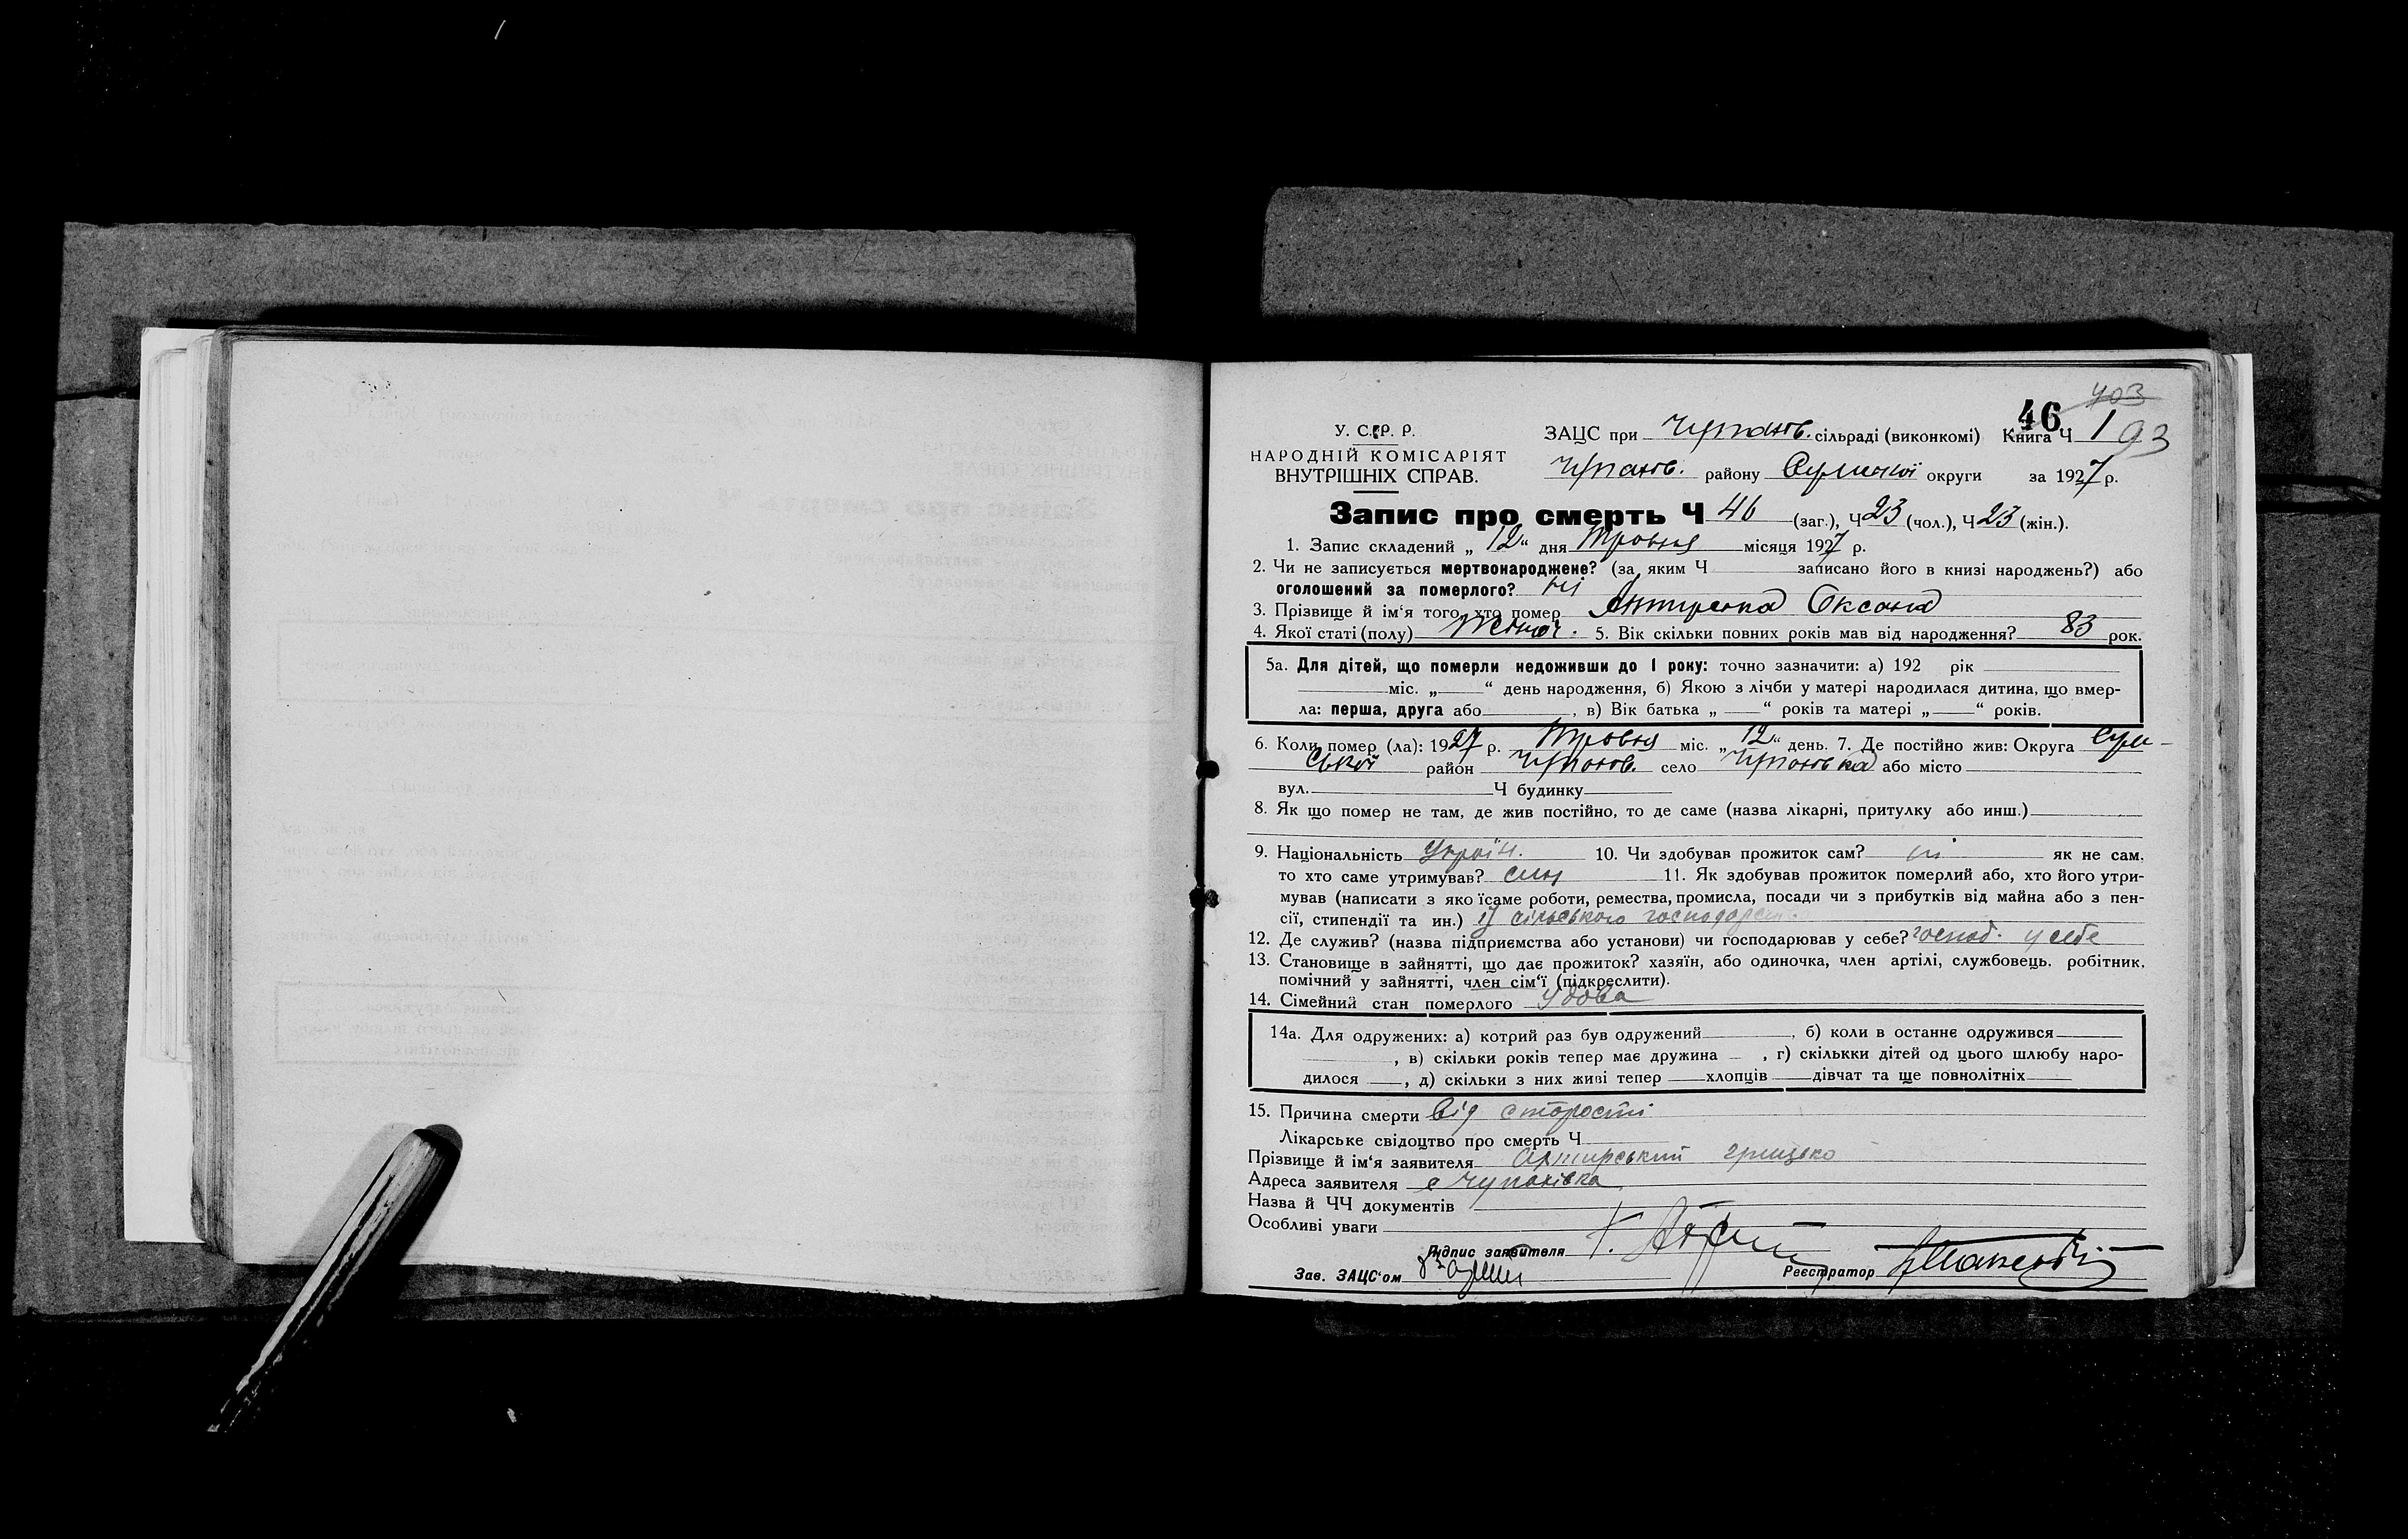 403
46
У. С. Р. Р.
НАРОДНІЙ КОМІСАРІЯТ
ВНУТРІШНІХ СПРАВ.
ЗАЦС при Чупахів. сільраді (виконкомі) Книга Ч 1 93
Чупахів. району Сумської округи за 1927 р.
Запис про смерть Ч 46 (заг.), Ч 23 (чол.), Ч 23 (жін.).
1. Запис складений „ 12 “ дня Травня місяця 1927 р.
2. Чи не записується мертвонароджене? (за яким Ч записано його в книзі народжень?) або
оголошений за померлого? ні
3. Прізвище й ім‘я того, хто помер Оксана
4. Якої статі (полу) Жіноч. 5. Вік скільки повних років мав від народження? 83 рок.
5а. Для дітей, що померли недоживши до 1 року: точно зазначити: а) 192 рік
міс. „ “ день народження, б) Якою з лічби у матері народилася дитина, що вмер-
ла: перша, друга або , в) Вік батька „ “ років та матері „ “ років.
6. Коли помер (ла): 1927 р. Травня міс. „ 12 “ день. 7. Де постійно жив: Округа Сум-
ської район Чупахів. село Чупахівка або місто
вул. Ч будинку
8. Як що помер не там, де жив постійно, то де саме (назва лікарні, притулку або инш.)
9. Національність Україн. 10. Чи здобував прожиток сам? ні як не сам,
то хто саме утримував? син 11. Як здобував прожиток померлий або, хто його утри-
мував (написати з яко їсаме роботи, ремества, промисла, посади чи з прибутків від майна або з пен-
сії, стипендії та ин.) із сільського господарства
12. Де служив? (назва підприємства або установи) чи господарював у себе? господ. у себе
13. Становище в зайнятті, що дає прожиток? хазяїн, або одиночка, член артілі, службовець, робітник,
помічний у зайнятті, член сім‘ї (підкреслити).
14. Сімейний стан померлого удова
14а. Для одружених: а) котрий раз був одружений , б) коли в останнє одружився
, в) скільки років тепер має дружина , г) скількки дітей од цього шлюбу наро-
дилося , д) скільки з них живі тепер хлопців дівчат та ще повнолітніх
15. Причина смерти від старости
Лікарське свідоцтво про смерть Ч
Прізвище й ім‘я заявителя Грицько
Адреса заявителя с Чупахівка
Назва й ЧЧ документів
Особливі уваги
Підпис заявителя
Зав. ЗАЦС‘ом Реєстратор